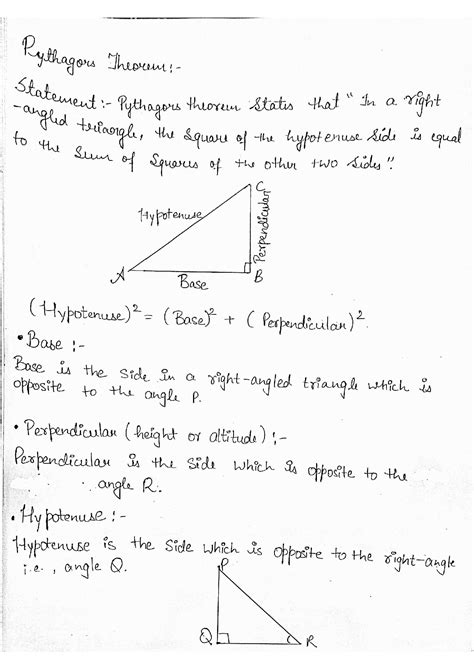 Pythagors Theorem :-
Statement :- Pythagors theorem States that "In a right
-angled triangle, the square of the hypotenuse side is equal
to the Sum of Squares of the other two sides".
C
Hypotenuse
Perpendicular
A
Base
B
(Hypotenuse)² = (Base)² + (Perpendicular)².
• Base :-
Base is the Side in a right-angled triangle which is
opposite to the angle P.
• Perpendicular (height or altitude) :-
Perpendicular is the Side which is opposite to the
angle R.
• Hypotenuse :-
Hypotenuse is the Side which is opposite to the right-angle
i.e., angle Q.
P
Q
R